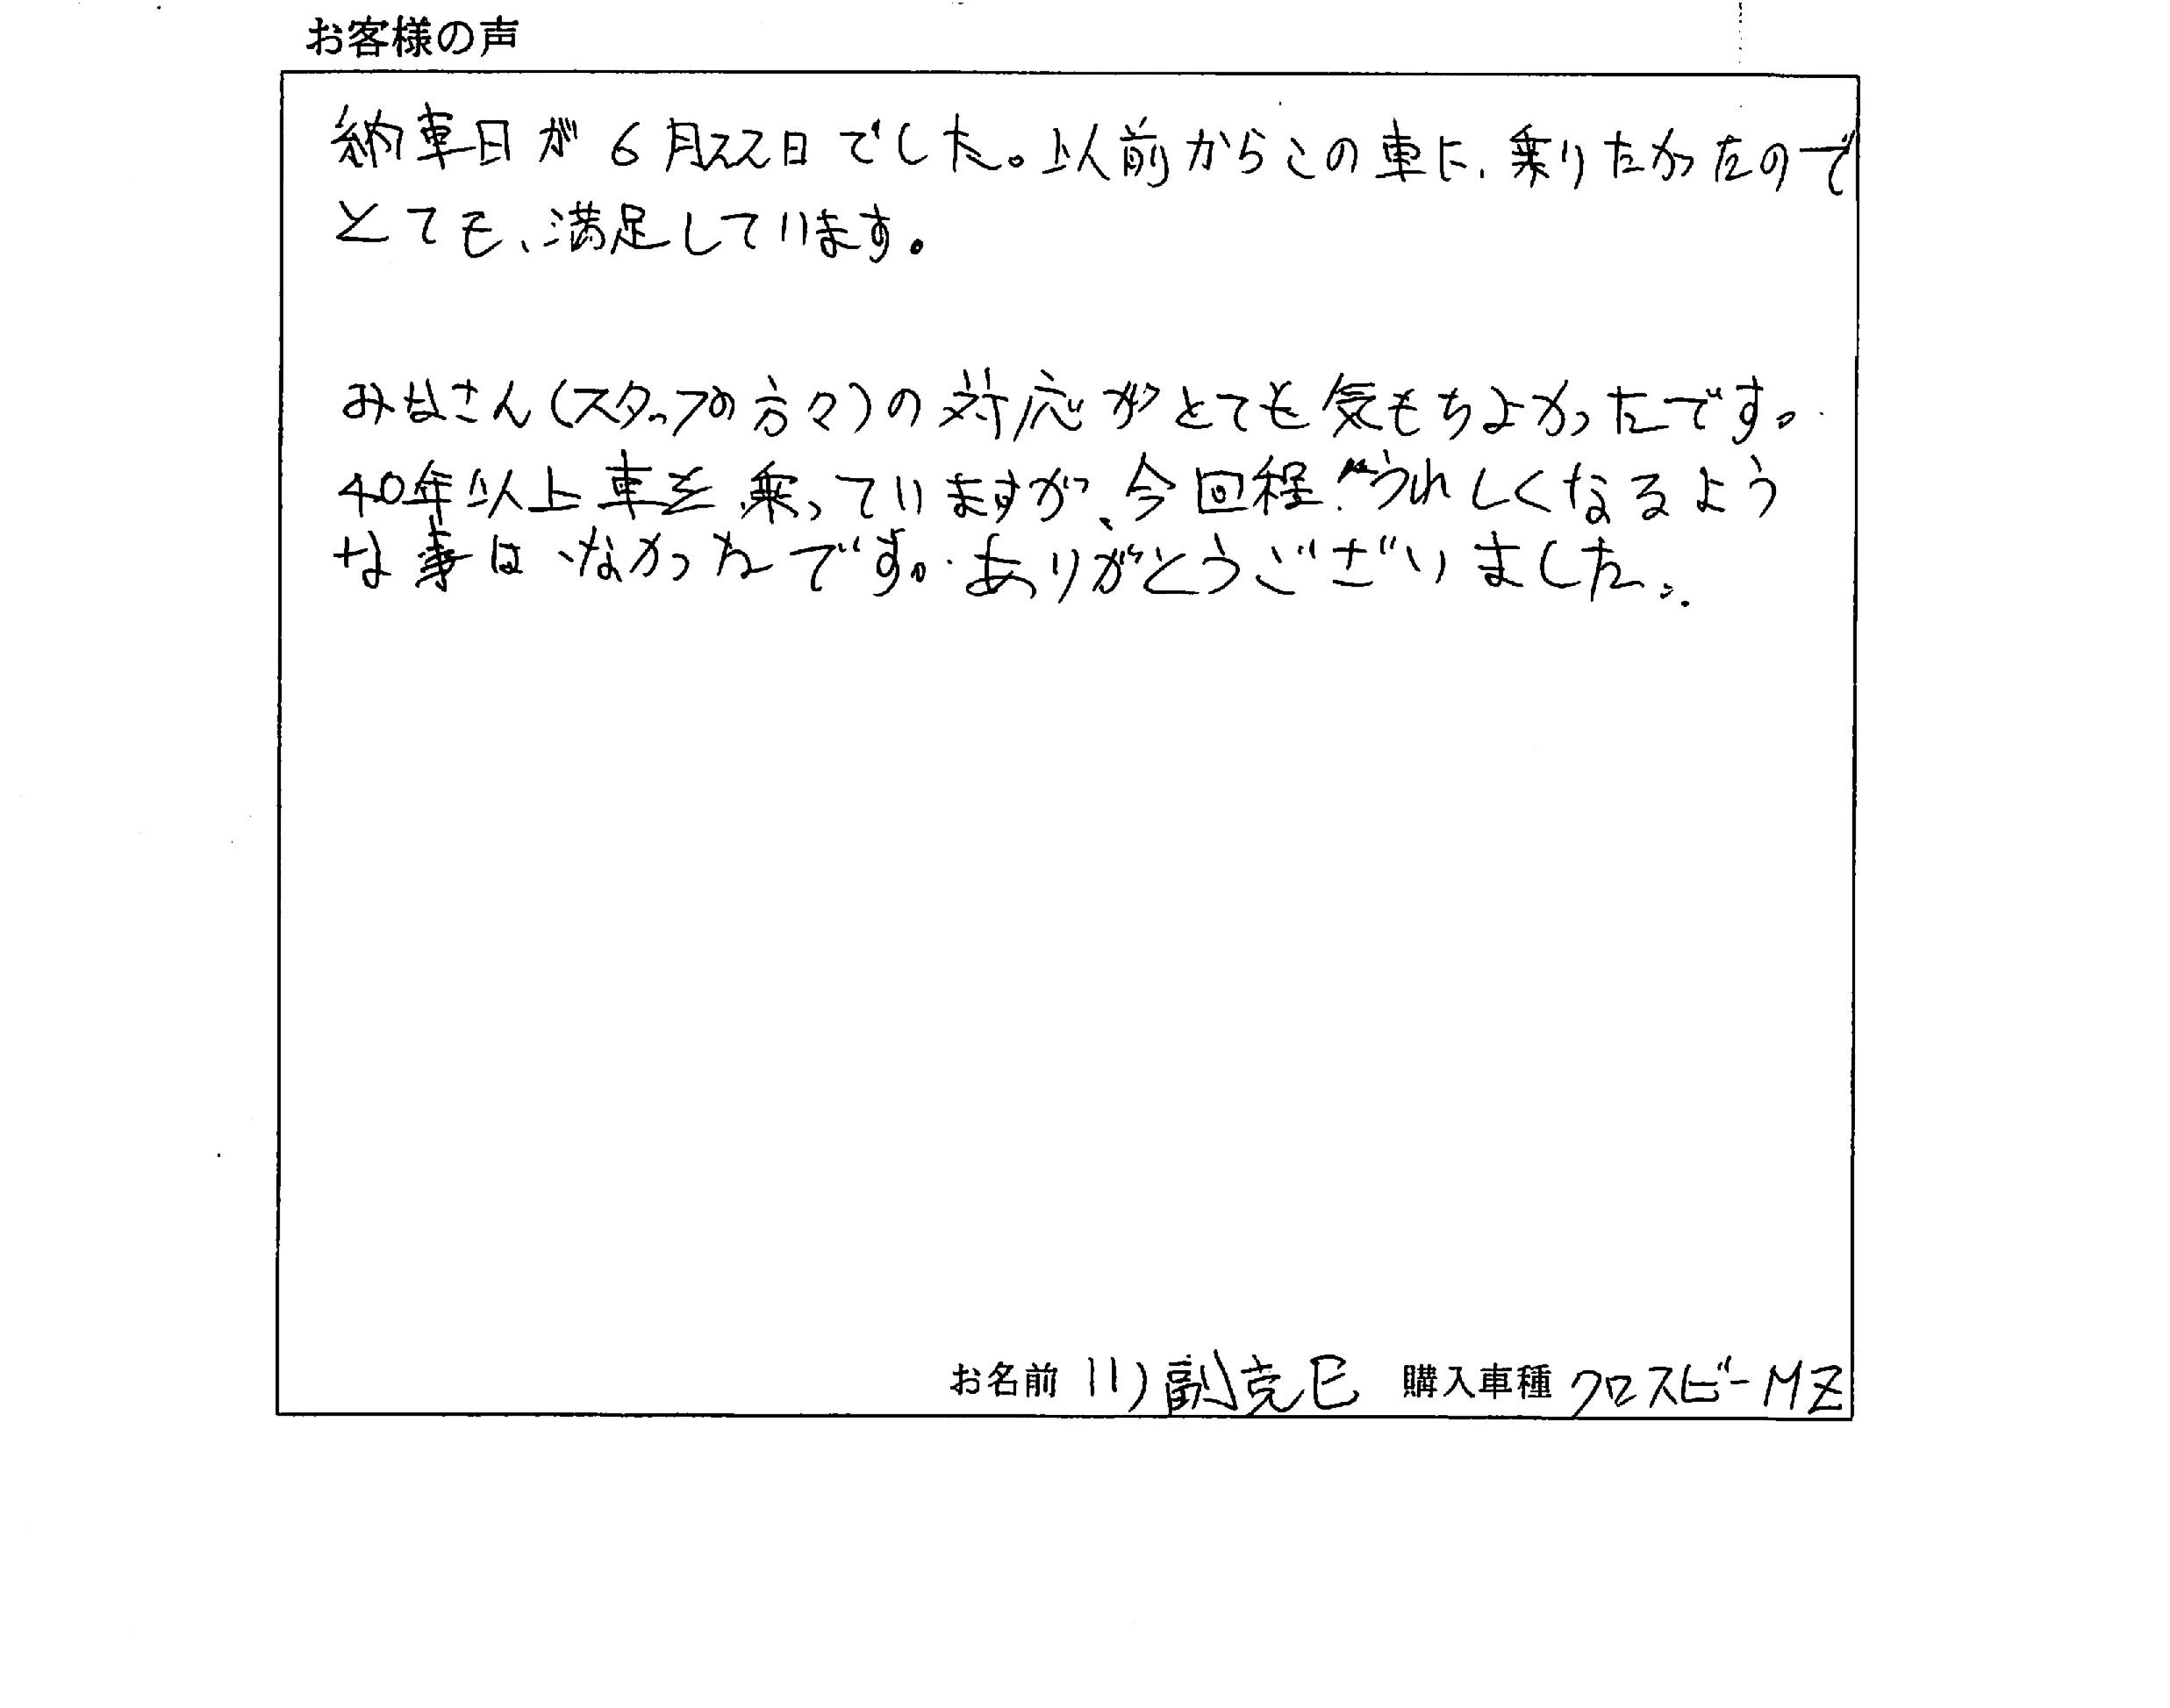 お客様の声
納車日が6月22日でした。以前からこの車に、乗りたかったので
とても、満足しています。
みなさん(スタッフの方々)の対応がとても気もちよかったです。
40年以上車を乗っていますが、今回程うれしくなるよう
な事はなかったです。ありがとうございました。
お名前 川副克巳 購入車種 クロスビーMZ